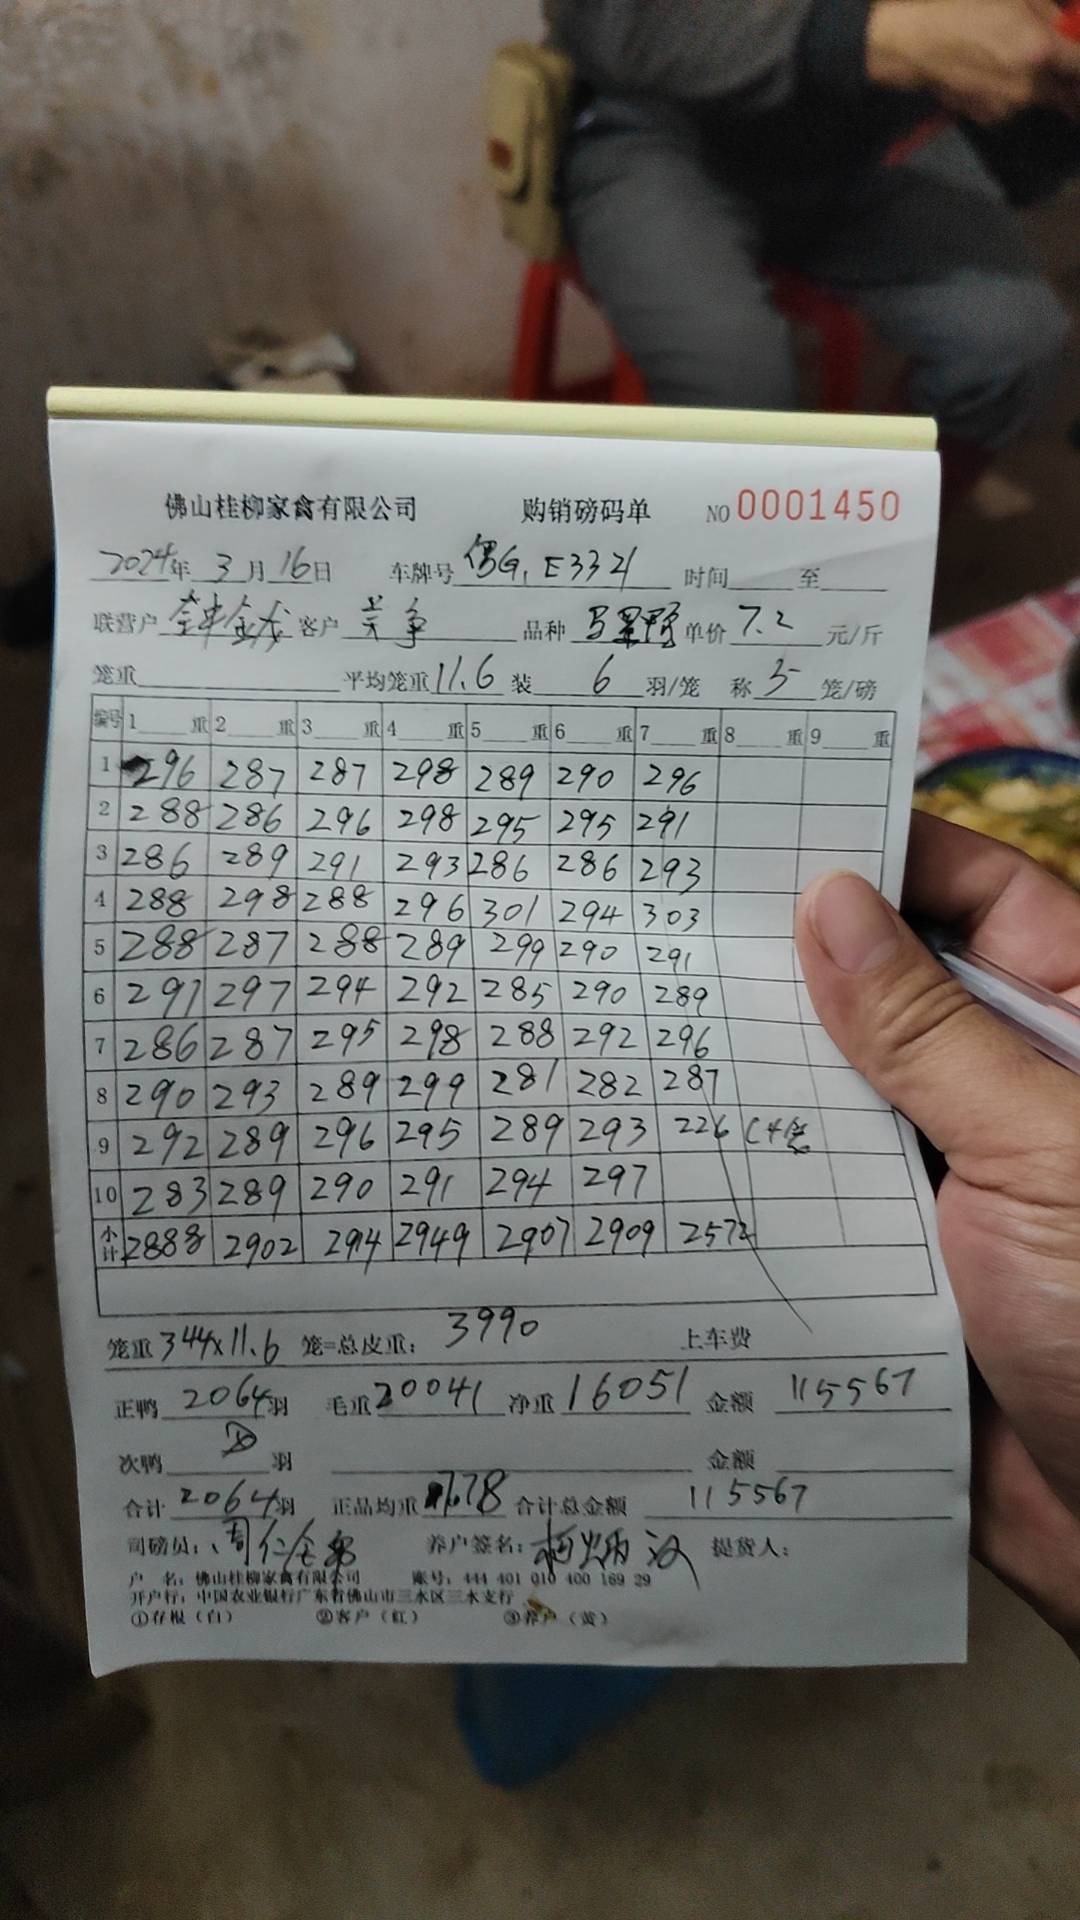 佛山桂柳家禽有限公司 购销磅码单 NO 0001450
2024年 3月16日 车牌号 G.E3321 时间 至
联营户 金龙 客户 争 品种 单价 7.2 元/斤
笼重 平均笼重 11.6 装 6 羽/笼 称 5 笼/磅
编号 1 重 2 重 3 重 4 重 5 重 6 重 7 重 8 重 9 重
1 296 287 287 298 289 290 296
2 288 286 296 298 295 295 291
3 286 289 291 293 286 286 293
4 288 298 288 296 301 294 303
5 288 287 288 289 299 290 291
6 291 297 294 292 285 290 289
7 286 287 295 298 288 292 296
8 290 293 289 299 281 282 287
9 292 289 296 295 289 293 226 (4笼
10 283 289 290 291 294 297
小计 2888 2902 2914 2949 2907 2909 2572
笼重 344x11.6 笼=总皮重: 3990 上车费
正鸭 2064羽 毛重 20041 净重 16051 金额 115567
次鸭 羽 金额
合计 2064羽 正品均重 7.78 合计总金额 115567
司磅员: 周仁 养户签名: 提货人:
户 名: 佛山桂柳家禽有限公司 账号: 444 401 010 400 169 29
开户行: 中国农业银行广东省佛山市三水区三水支行
①存根(白) ②客户(红) ③养户(黄)